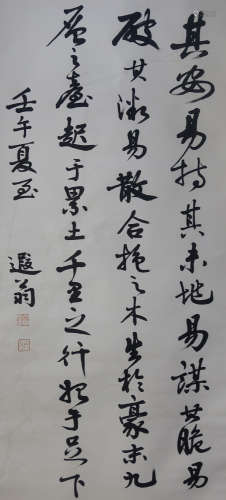 其安易持其未兆易謀其脆易
破其微易散合抱之木生於豪末九
層之臺起于累土千里之行始于足下
壬午夏至 遐翁